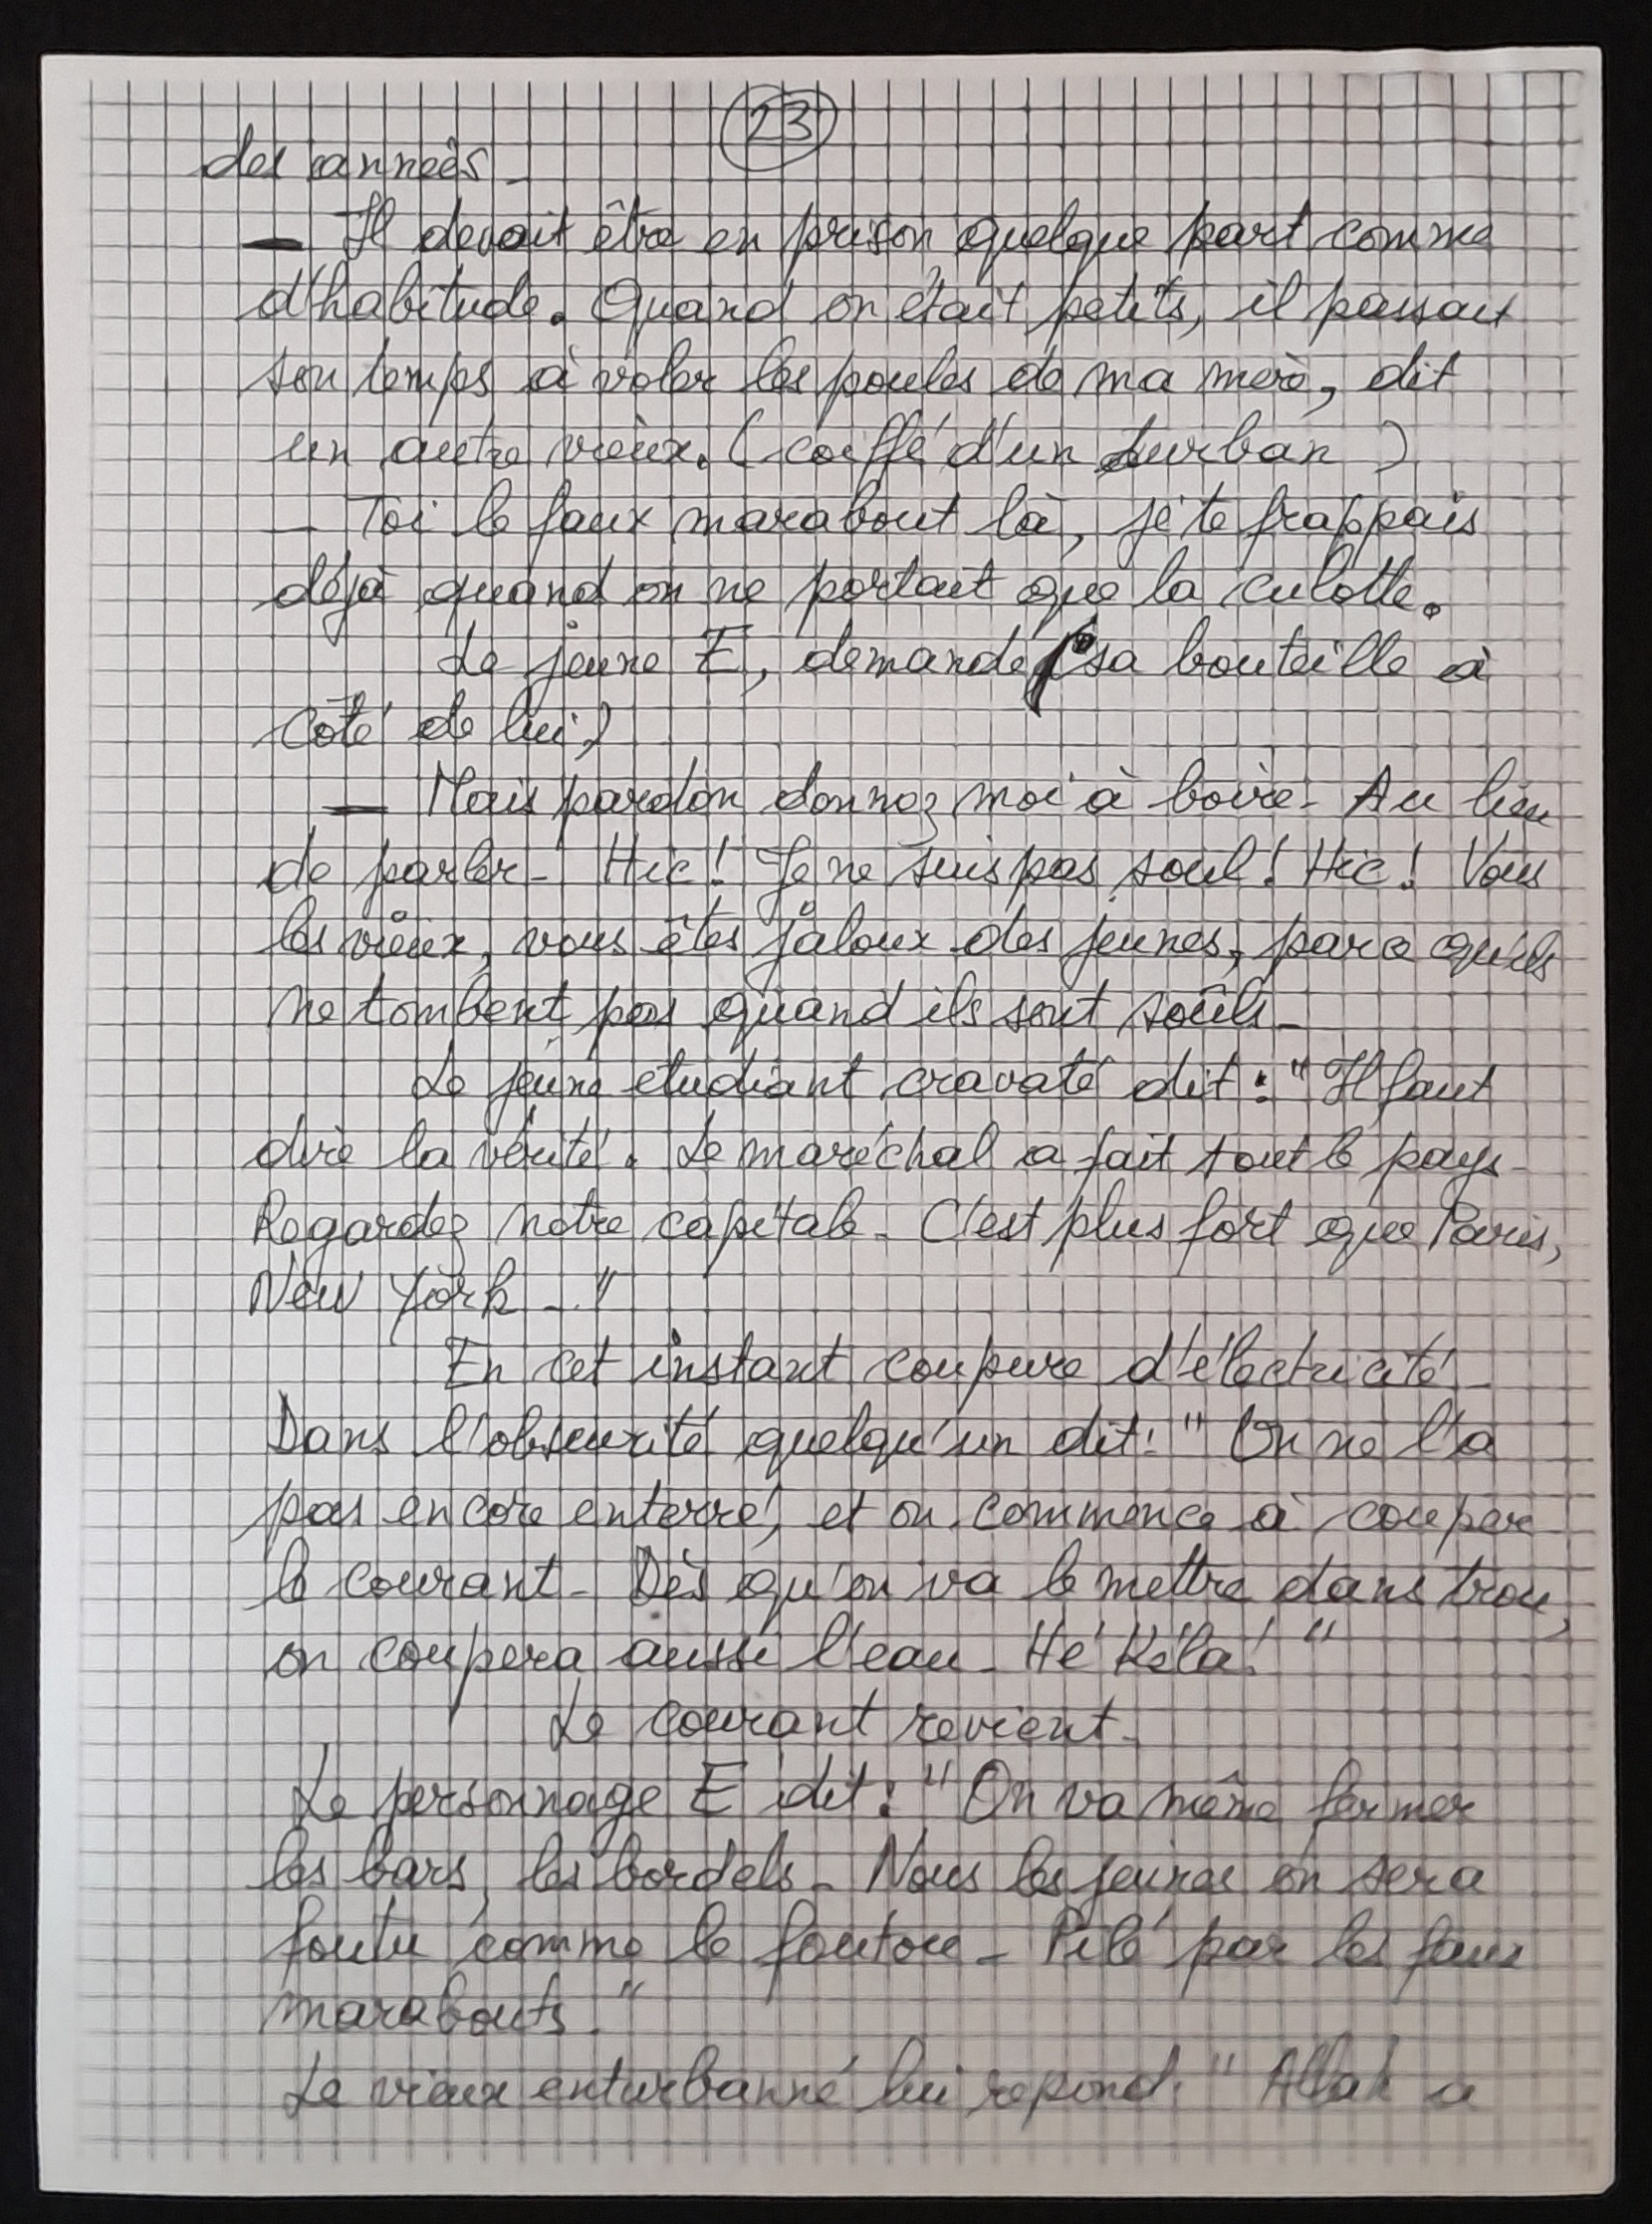 23
des années.
— Il devait être en prison quelque part comme
d'habitude. Quand on était petits, il passait
son temps à voler les poules de ma mère, dit
un autre vieux. (coiffé d'un turban)
— Toi le faux marabout là, je te frappais
déjà quand on ne portait que la culotte.
Le jeune E, demande (sa bouteille à
côté de lui)
— Mais pardon donnez moi à boire. Au lieu
de parler. Hic! Je ne suis pas soul! Hic! Vous
les vieux, vous êtes jaloux des jeunes, parce qu'ils
ne tombent pas quand ils sont soûls.
Le jeune étudiant cravaté dit : "Il faut
dire la vérité. Le maréchal a fait tout le pays.
Regardez notre capitale. C'est plus fort que Paris,
New York ..."
En cet instant coupure d'électricité.
Dans l'obscurité quelqu'un dit: "On ne l'a
pas encore enterré, et on commence à couper
le courant. Dès qu'on va le mettre dans trou,
on coupera aussi l'eau. Hé Kéla!"
Le courant revient.
Le personnage E dit: "On va même fermer
les bars, les bordels. Nous les jeunes on sera
foutu comme le foutou. Pilé par les faux
marabouts."
Le vieux enturbanné lui repond: "Allah a